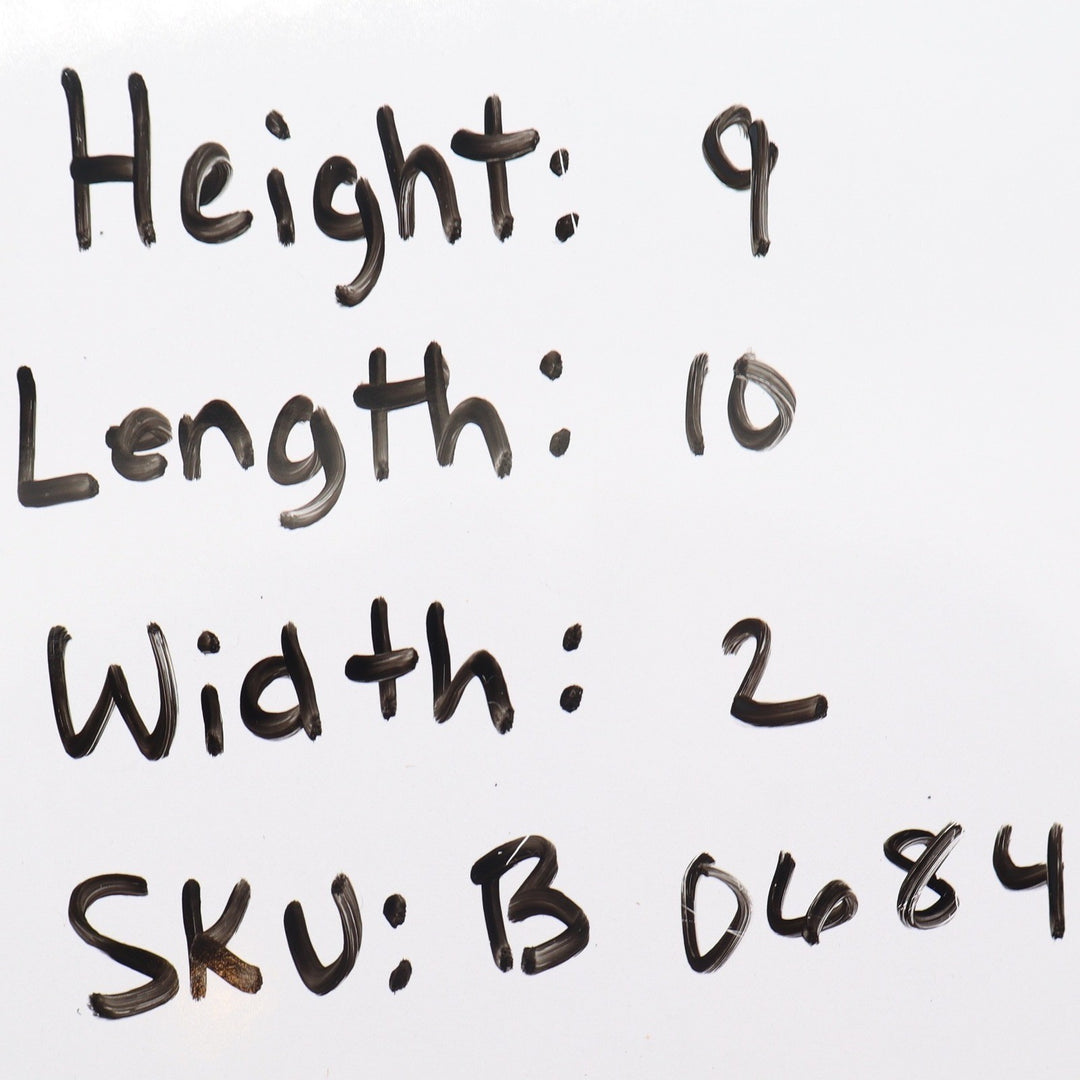 Height: 9
Length: 10
Width: 2
SKU: B 0684